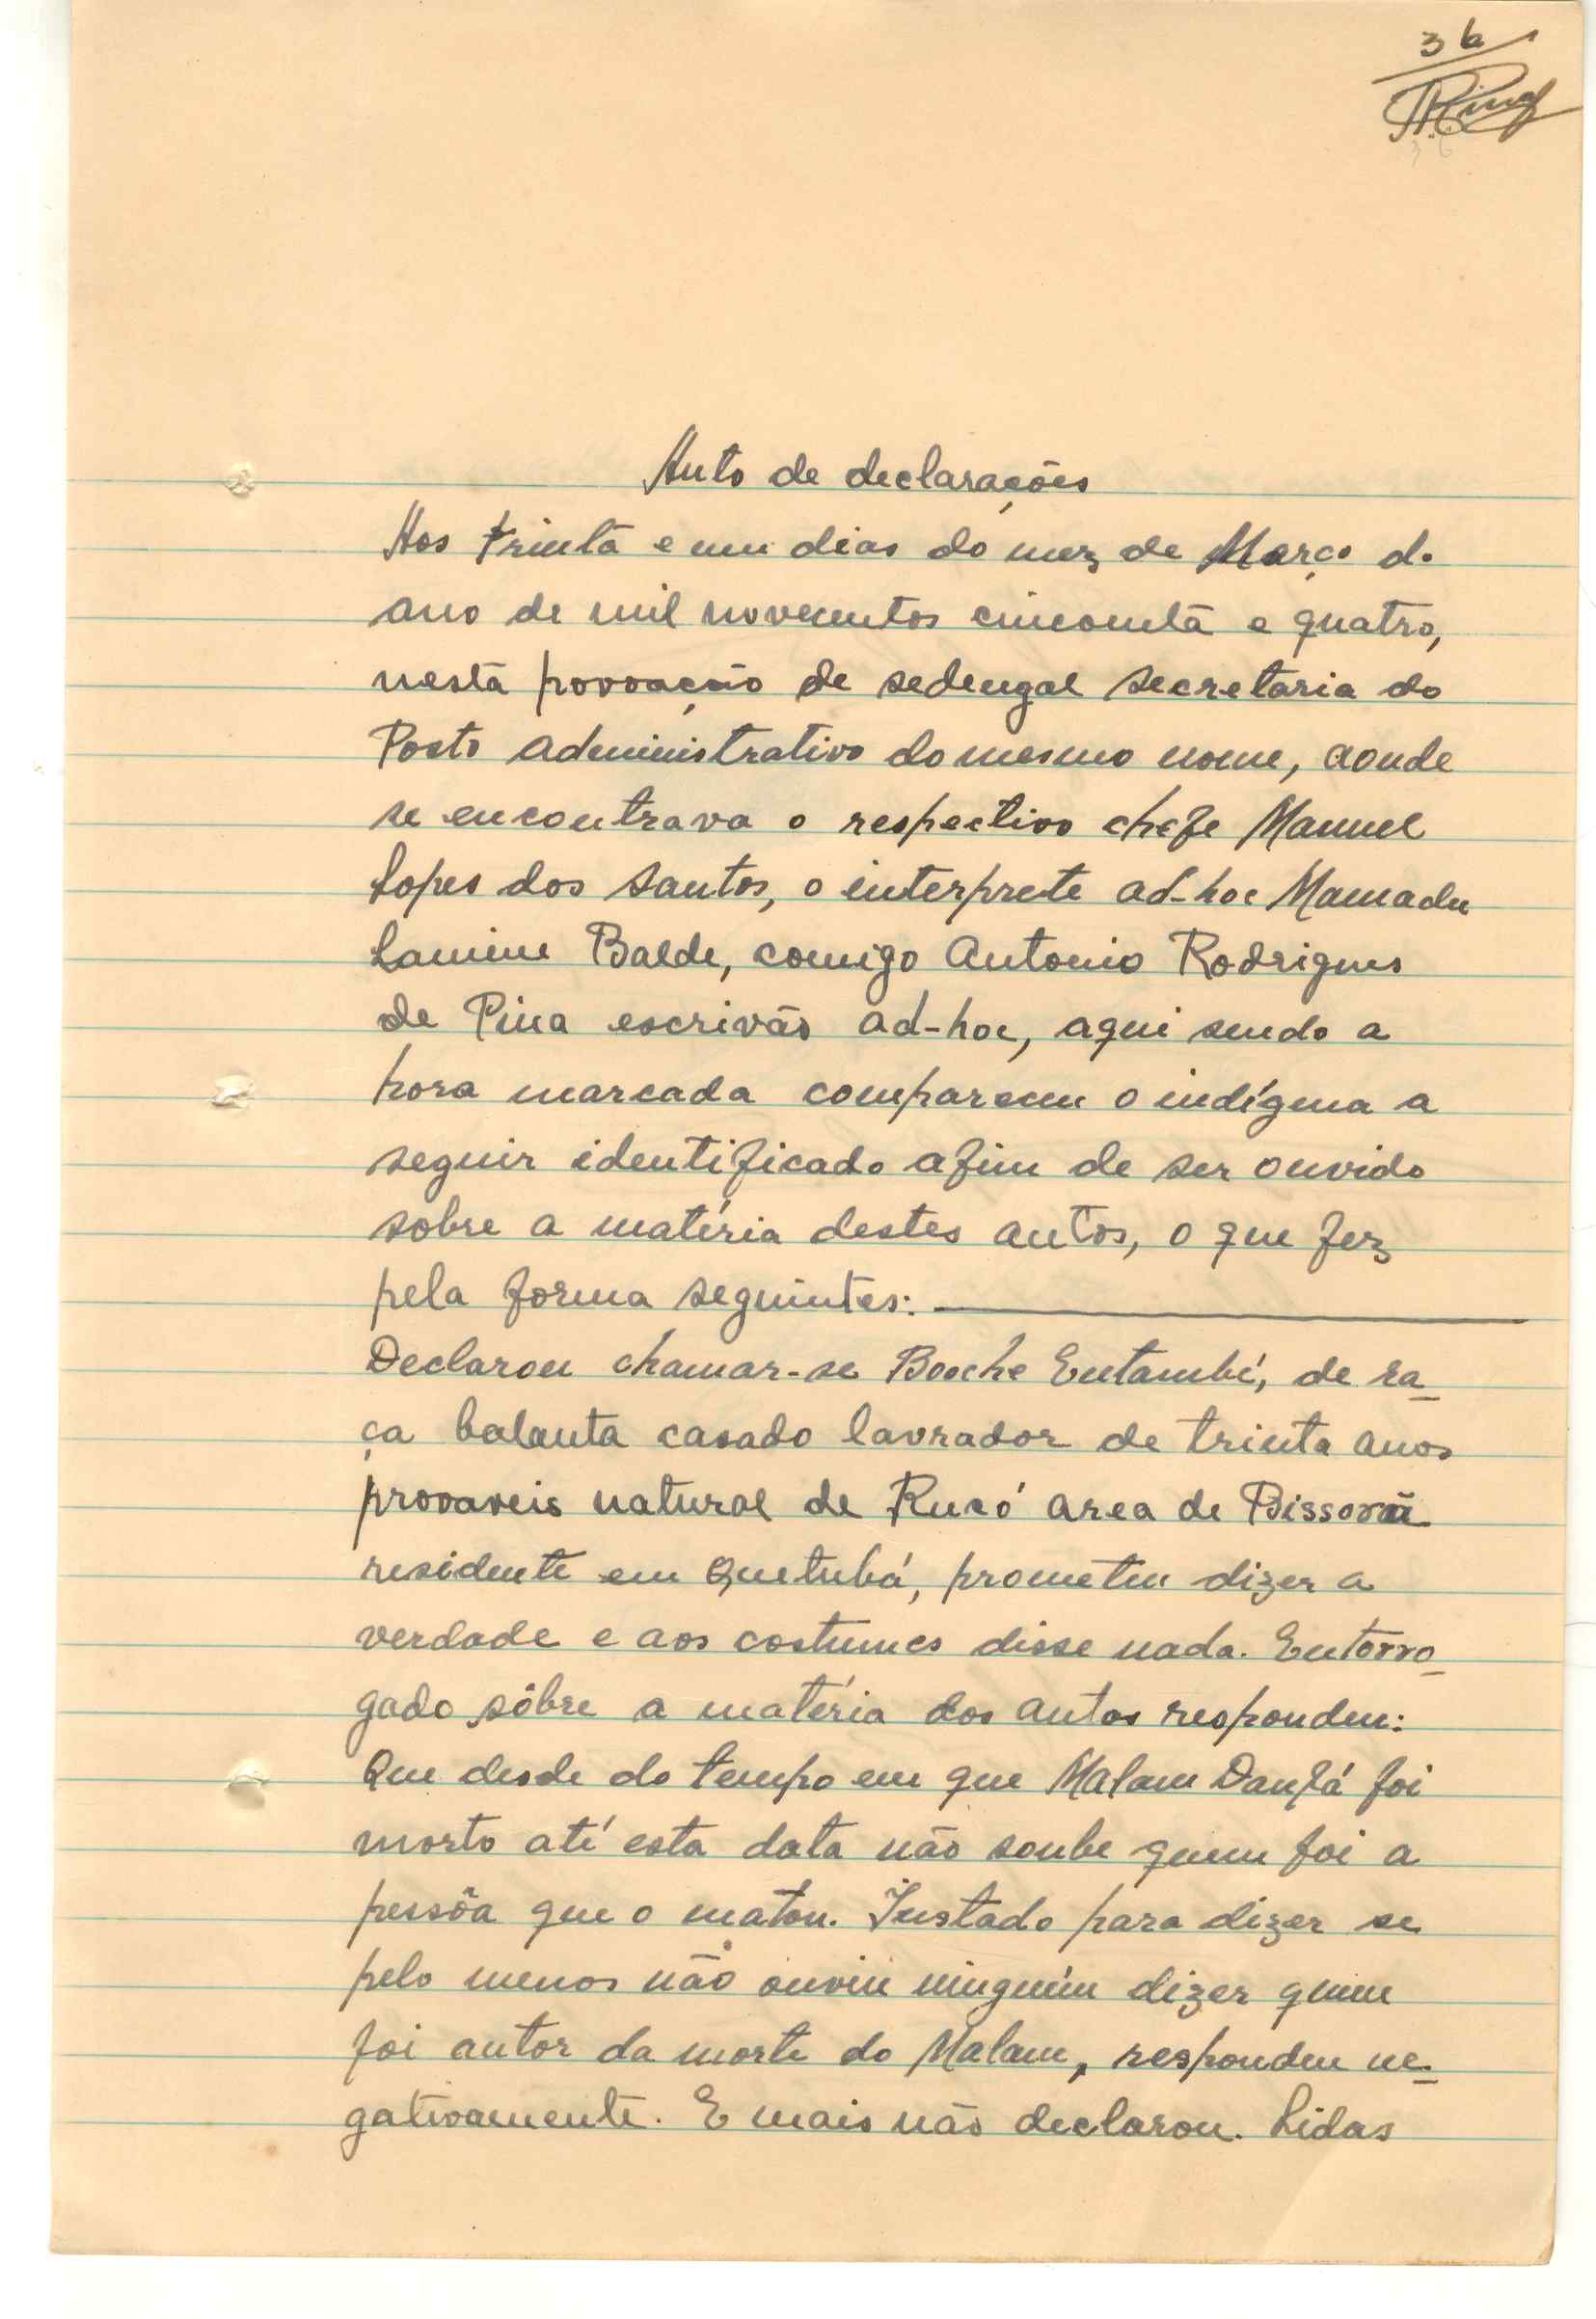 36
RPina
Auto de declarações
Aos trinta e um dias do mez de Março do
ano de mil novecentos cinconta e quatro,
nesta povoação de sedengal secretaria do
Posto administrativo do mesmo nome, aonde
se encontrava o respectivo chefe Manuel
Lopes dos Santos, o interprete ad-hoc Mamadu
Lamine Balde, comigo Antonio Rodrigues
de Pina escrivão ad-hoc, aqui sendo a
hora marcada compareceu o indígena a
seguir identificado afim de ser ouvido
sobre a matéria destes autos, o que fez
pela forma seguintes:
Declarou chamar-se Booche Entambé, de ra_
ça balanta casado lavrador de trinta anos
provaveis natural de Rucó area de Bissorã
residente em Quetubá, prometeu dizer a
verdade e aos costumes disse nada. Entorro_
gado sôbre a matéria dos autos respondeu:
Que desde do tempo em que Malam Danfá foi
morto até esta data não soube quem foi a
pessôa que o matou. Instado para dizer se
pelo menos não ouviu ninguém dizer quem
foi autor da morte do Malam, respondeu ne_
gativamente. E mais não declarou. Lidas